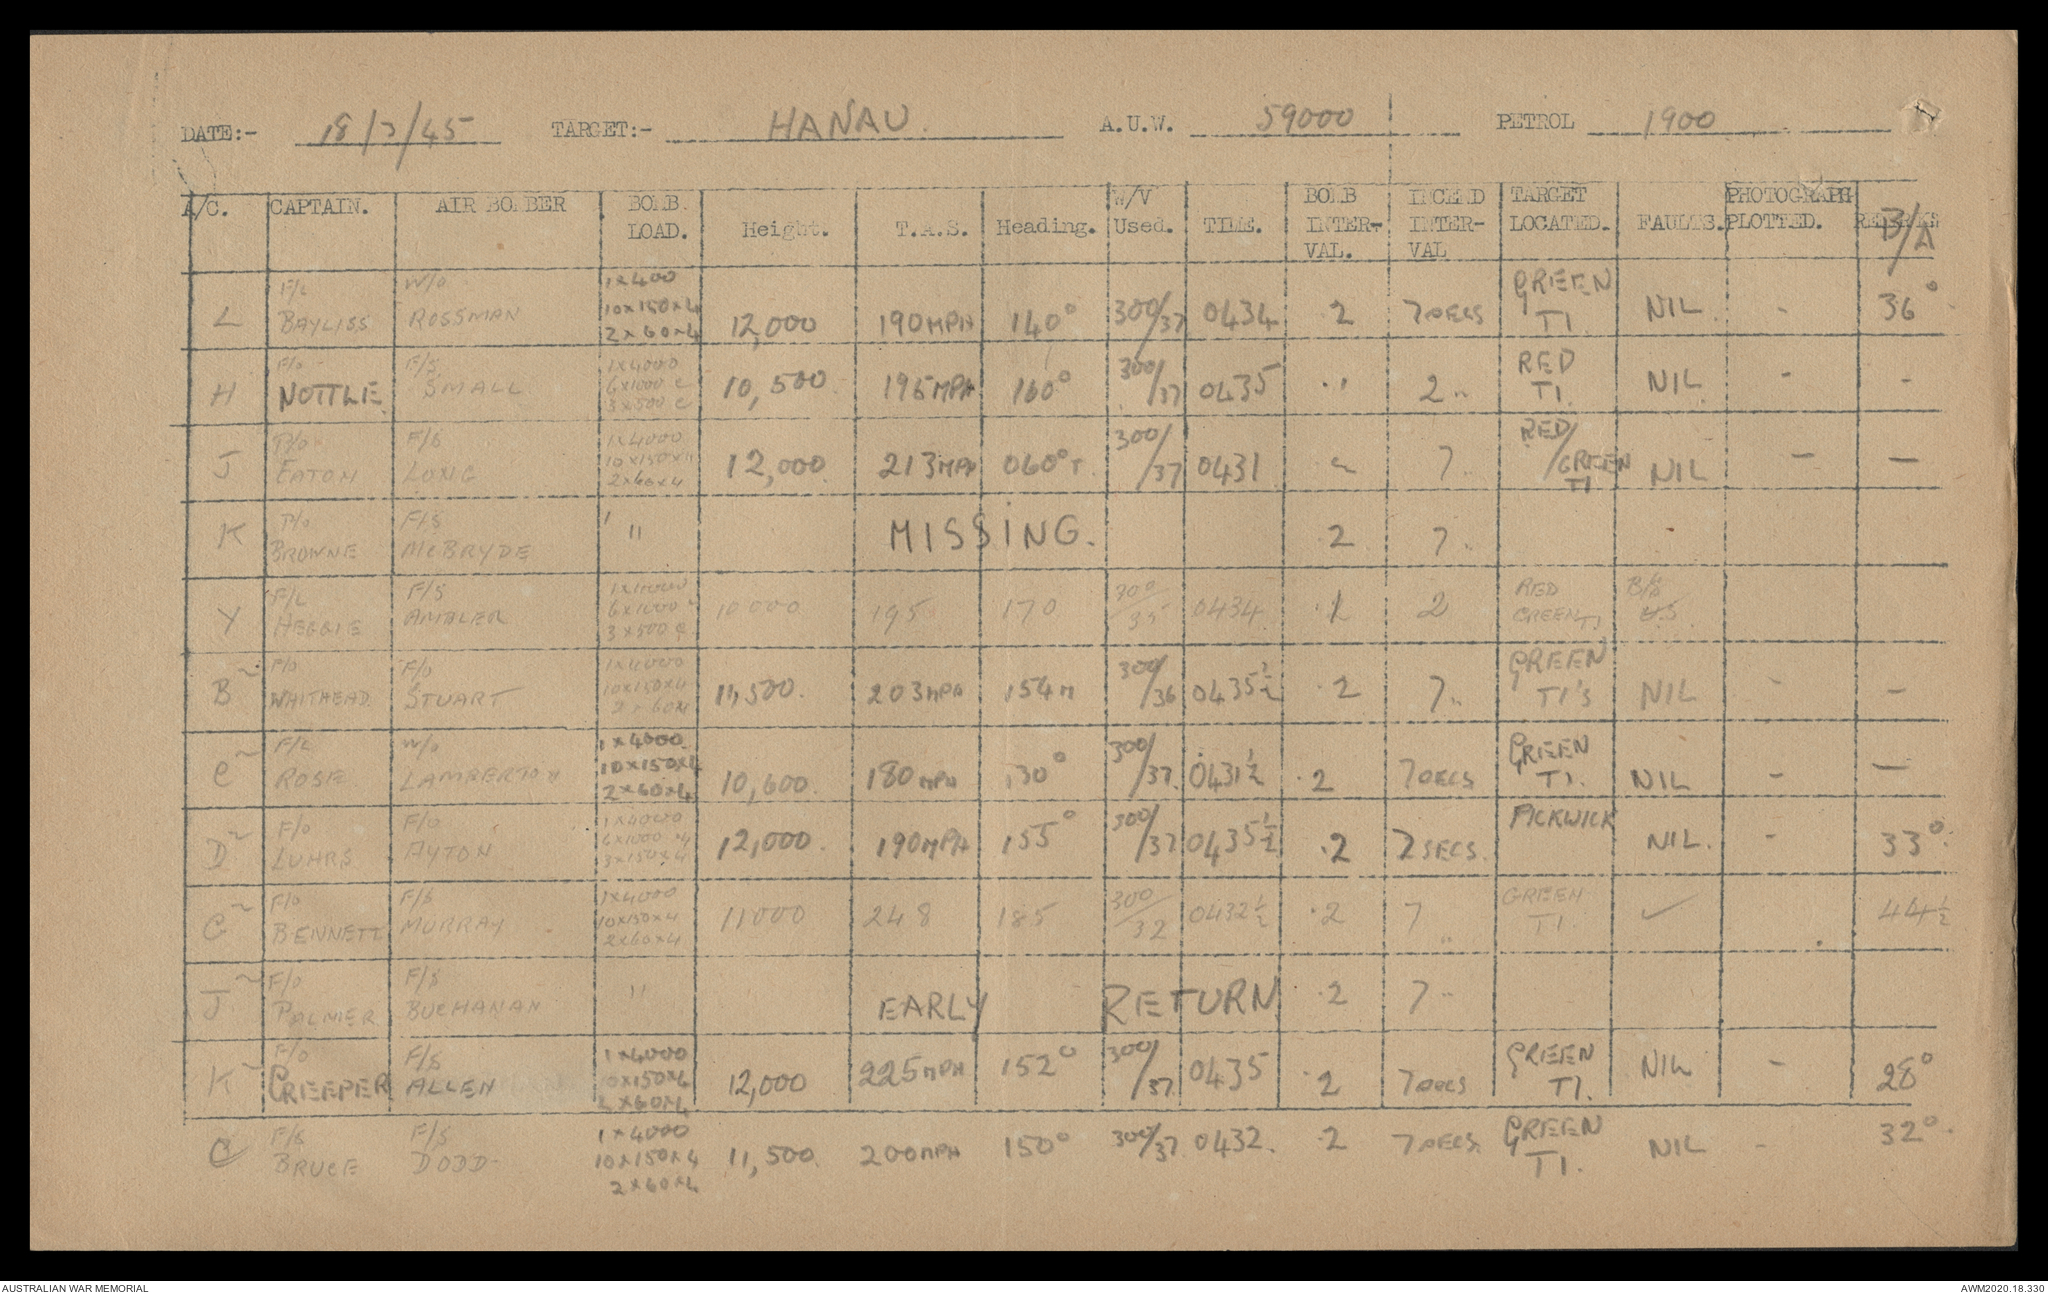 DATE:- 18/3/45 TARGET:- HANAU. A.U.W. 59000 PETROL 1900
A/C. CAPTAIN. AIR BOMBER BOMB LOAD. Height. T.A.S. Heading. W/V Used. TIME. BOMB INTER-VAL. INCEND INTER-VAL TARGET LOCATED. FAULTS. PHOTOGRAPH PLOTTED. REMARKS B/A
L F/L BAYLISS W/O ROSSMAN 1x400 10x150x4 2x60x4 12,000 190MPH 140° 300/37 0434 2 7 SECS GREEN TI. NIL. - 36°
H F/O NOTTLE F/S. SMALL 1x4000 6x1000 c 3x500 c 10,500. 195MPH 160° 300/37 0435 .1 2 " RED TI. NIL. - -
J P/O EATON F/S LONG 1x4000 10x150x4 2x60x4 12,000 213MPH 060°T. 300/37 0431 7 " RED/GREEN TI NIL - -
K P/O BROWNE F/S McBRYDE " MISSING. 2 7 "
Y F/L HEGGIE F/S AMBLER 1x4000 6x1000 3x500 10000 195 170 300/35 0434 .1 2 RED GREEN TI B/S
B~ F/O WHITHEAD. F/O STUART 1x4000 10x150x4 2x60x4 11,500. 203MPH 154M 300/36 0435½ .2 7 " GREEN TI'S NIL - -
C~ F/L ROSE W/O LAMBERTON 1x4000 10x150x4 2x60x4 10,600. 180MPH 130° 300/37. 0431½ .2 7 SECS GREEN TI. NIL - -
D~ F/O LUHRS F/O AYTON 1x4000 6x1000x4 3x150x4 12,000. 190MPH 155° 300/37 0435½ .2 2 SECS. PICKWICK NIL. - 33°.
~ F/O BENNETT F/S MURRAY 1x4000 10x150x4 2x60x4 11000 248 185 300/32 0432½ .2 7 " GREEN TI. ✓ 44½
J~ F/O PALMER F/S BUCHANAN " EARLY RETURN .2 7 "
K~ F/O CREEPER F/S ALLEN 1x4000 10x150x4 2x60x4 12,000 225MPH 152° 300/37. 0435 .2 7 SECS GREEN TI. NIL - 28°
F/S BRUCE F/S DODD- 1x4000 10x150x4 2x60x4 11,500. 200MPH 150° 300/37 0432. .2 7 SECS. GREEN TI. NIL - 32°.
AUSTRALIAN WAR MEMORIAL AWM2020.18.330